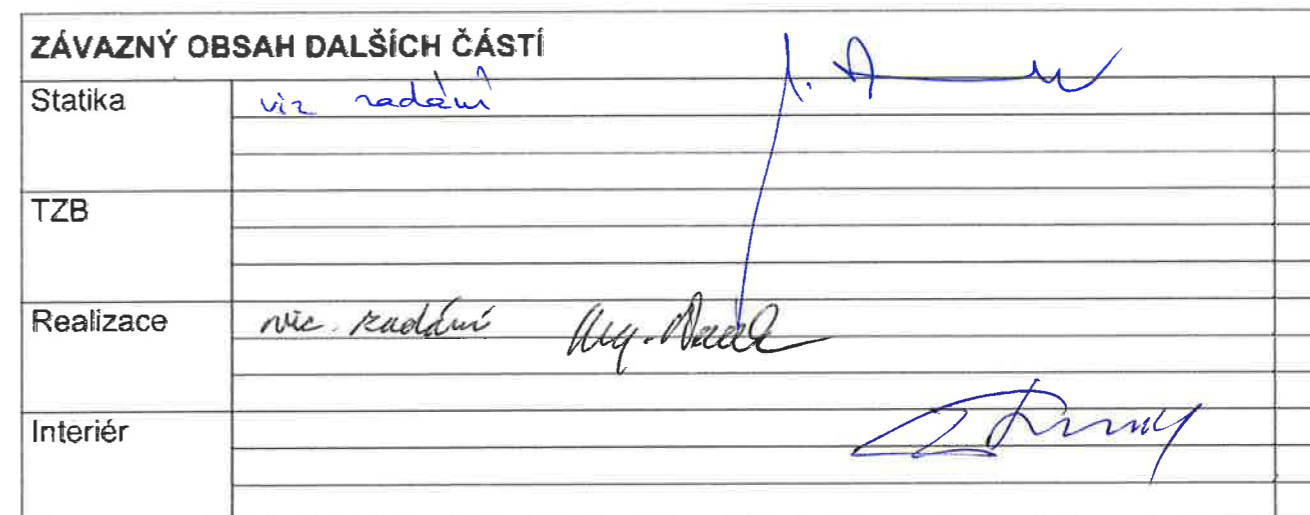 ZÁVAZNÝ OBSAH DALŠÍCH ČÁSTÍ
Statika viz zadání
TZB
Realizace viz. zadání
Interiér